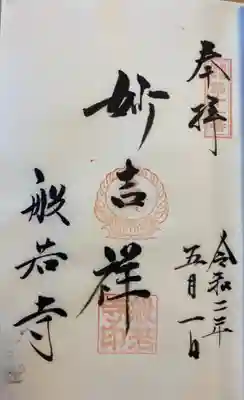 奉拝
令和二年
五月一日
妙吉祥
般若寺